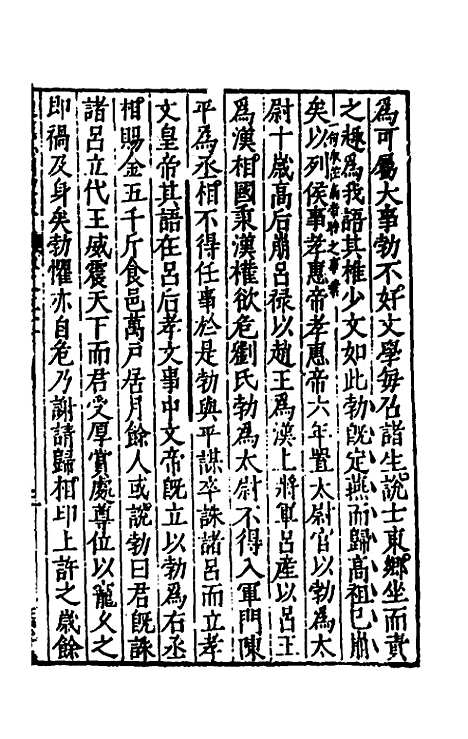 為可屬大事勃不好文學每召諸生說士東鄉坐而責
之趣為我語其椎少文如此勃既定燕而歸高祖已崩
矣以列侯事孝惠帝孝惠帝六年置太尉官以勃為太
尉十歲高后崩呂祿以趙王為漢上將軍呂產以呂王
為漢相國秉漢權欲危劉氏勃為太尉不得入軍門陳
平為丞相不得任事於是勃與平謀卒誅諸呂而立孝
文皇帝其語在呂后孝文事中文帝既立以勃為右丞
相賜金五千斤食邑萬戶居月餘人或說勃曰君既誅
諸呂立代王威震天下而君受厚賞處尊位以寵久之
即禍及身矣勃懼亦自危乃謝請歸相印上許之歲餘